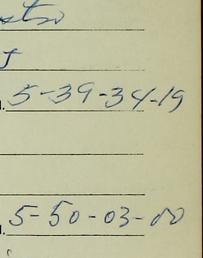 5-39-34-19
5-50-03-00